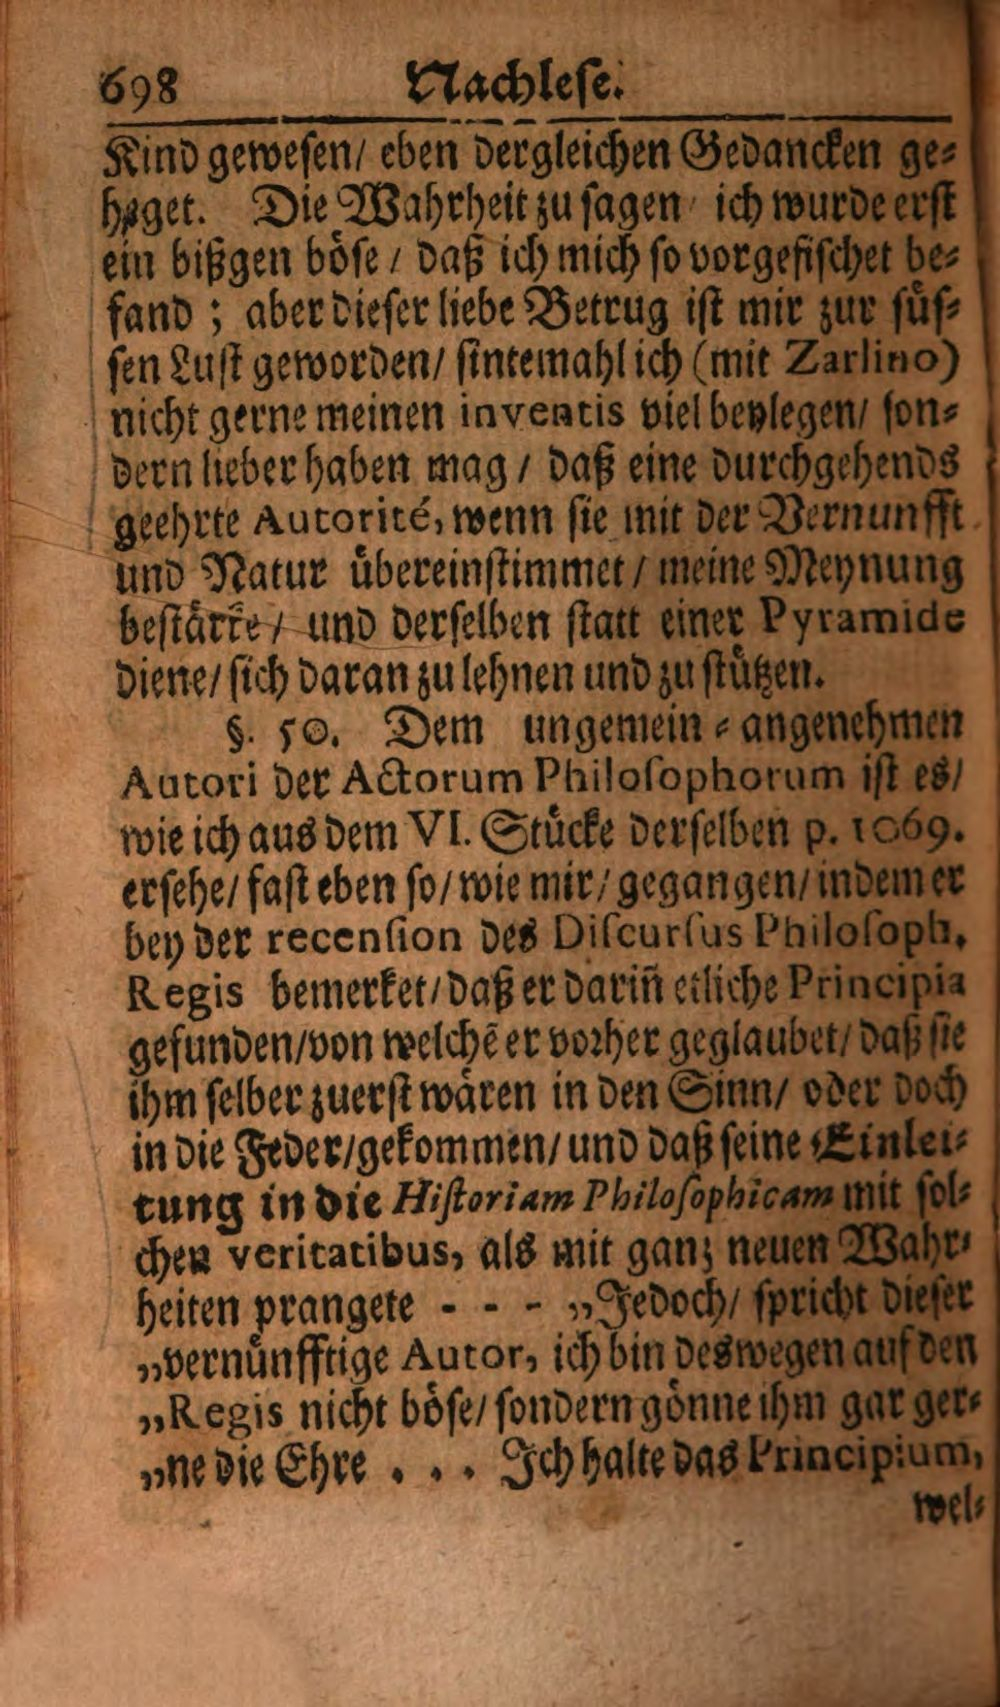 698 Nachlese.
Kind gewesen/ eben dergleichen Gedancken ge⸗
heget. Die Wahrheit zu sagen/ ich wurde erst
ein bißgen böse / daß ich mich so vorgefischet be⸗
fand ; aber dieser liebe Betrug ist mir zur süs⸗
sen Lust geworden/ sintemahl ich (mit Zarlino)
nicht gerne meinen inventis viel beylegen/ son⸗
dern lieber haben mag / daß eine durchgehends
geehrte Autorité, wenn sie mit der Vernunfft
und Natur übereinstimmet / meine Meynung
bestärke / und derselben statt einer Pyramide
diene/ sich daran zu lehnen und zu stützen.
§. 50. Dem ungemein ⸗ angenehmen
Autori der Actorum Philosophorum ist es/
wie ich aus dem VI. Stücke derselben p. 1069.
ersehe/ fast eben so/ wie mir/ gegangen/ indem er
bey der recension des Discursus Philosoph.
Regis bemerket/ daß er dariñ etliche Principia
gefunden/von welchē er vorher geglaubet/ daß sie
ihm selber zuerst wären in den Sinn/ oder doch
in die Feder/gekommen/ und daß seine Einlei⸗
tung in die Historiam Philosophicam mit sol⸗
chen veritatibus, als mit ganz neuen Wahr⸗
heiten prangete - - - „Jedoch/ spricht dieser
„vernünfftige Autor, ich bin deswegen auf den
„Regis nicht böse/ sondern gönne ihm gar ger⸗
„ne die Ehre . . . Ich halte das Principium,
wel⸗